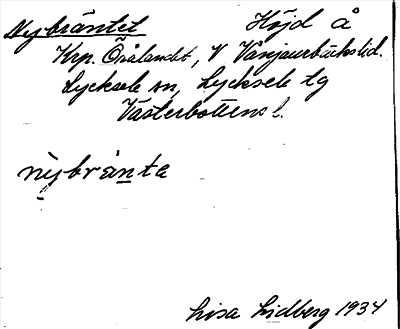 Nybräntet Höjd å
Krp. Örålandet, V Vånjaurbäckslid.
Lycksele sn, Lycksele tg
Västerbottens l.
nỳbrànta
Lisa Lidberg 1934